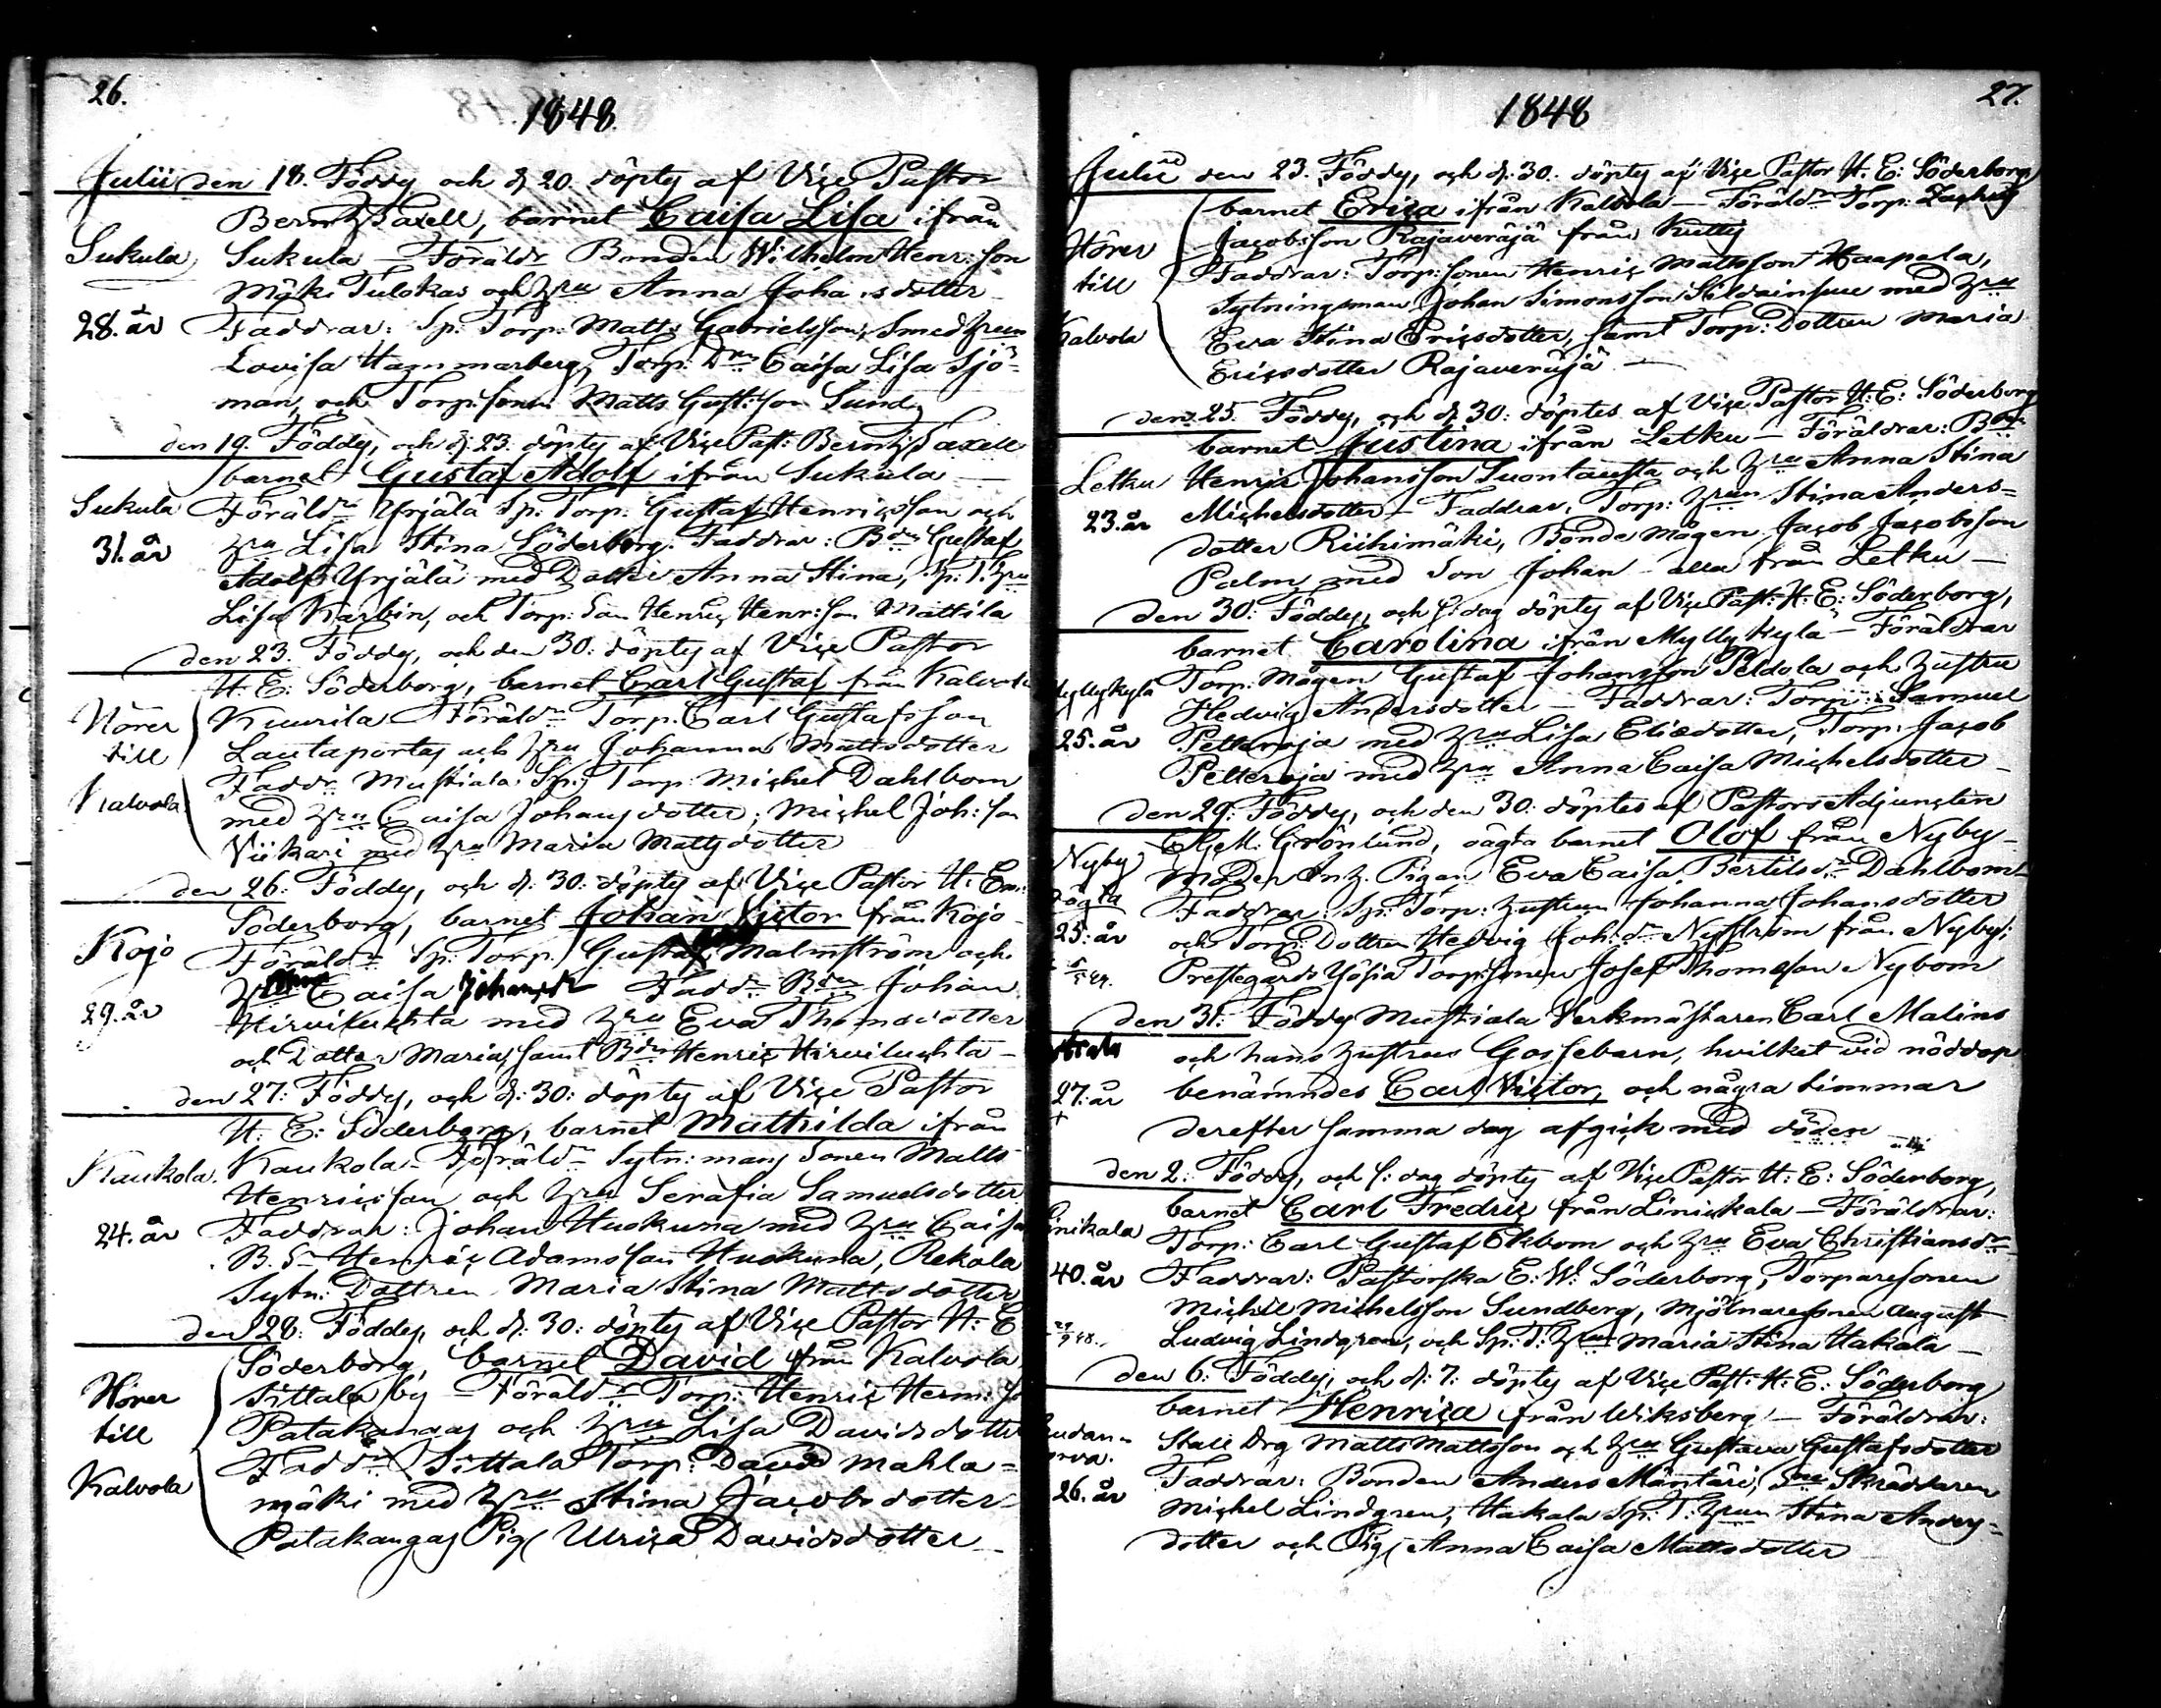 26.
1848.
Julii den 18. Föddes och d. 20. döptes af Viçe Pastor
Berndt Taxell, barnet Caisa Lisa ifrån
Sukula Sukula – Föräldr. Bonden Wilhelm Henr:son
Mäki Tulokas och Hru Anna Joha sdotter
28. år Faddrar: Sp: Torp: Matts Gabrielsson, Smed Hrun
Lovisa Hammarberg, Torp: Drn Caisa Lisa Sjö-
man, och Torp:sonen Matts Gust:son Lund
den 19. Föddes, och d. 23. döptes af Viçe Past: Berndt Taxell
barnet Gustaf Adolf ifrån Sukula
Sukula Föräldr Yrjälä Sp: Torp: Gustaf Henricsson och
31. år Hru Lisa Stina Söderberg. Faddrar: Bdn Gustaf
Adolf Yrjälä med Dotter Anna Stina, Sp: T: Hru
Lisa Karbin, och Torp: Son Henric Henr:son Mattila
den 23. Föddes, och den 30: döptes af Viçe Pastor
H: E: Söderborg, barnet Carl Gustaf från Kalvola
Hörer Kuurila Föräldr Torp. Carl Gustafsson
till Lautaportas och Hru Johanna Mattsdotter
Faddr Mustiala Sp: Torp Michel Dahlbom
Kalvola med Hru Caisa Johansdotter; Michel Joh:son
Viikari med Hru Maria Mattsdotter
den 26: Föddes, och d: 30: döptes af Viçe Pastor H: Em:
Söderborg, barnet Johan Victor från Kojo
Kojo Föräldr Sp: Torp: Gustaf Malmström och
Hru Caisa Johansdr Fadd Bdn Johan
29. år Hirvikuhta med Hru Eva Thomasdotter
och Dotter Maria, samt Bdn Henric
den 27: Föddes, och d: 30: döptes af Viçe Pastor
H: E: Söderborg, barnet Mathilda ifrån
Kaukola. Kaukola – Föräldr Sytn:mans Sonen Matts
Henricsson och Hru Serafia Samuelsdotter
24. år Faddrar: Johan Huokuna med Hru Caisa
B. S. Henric Adamsson Huokuna, Rekola
Sytn: Dottren Maria Stina Mattsdotter
den 28: Föddes, och d: 30: döptes af Viçe Pastor H: E
Söderborg, barnet David från Kalvola
Hörer Sittala by – Föräldr Torp: Henric Herm:
till Patakangas och Hru Lisa Davidsdotter
Faddr Sittala Torp: David Mahla-
Kalvola mäki med Hru Stina Jacobsdotter
Patakangas Pig Ulrica Davidsdotter
27.
1848
Julii den 23. Föddes, och d. 30. döptes af Viçe Pastor H. E: Söderborg
barnet Erica ifrån Kalvola – Föräldr Torp:
Hörer Jacobsson Rajaveräjä från
till Faddrar: Torp:sonen Henric Mattsson Haapala,
Sytningsman Johan Simonsson med Hru
Kalvola Eva Stina Ericsdotter, samt Torp: Dottren Maria
Ericsdotter Rajaveräjä –
den 25. Föddes, och d. 30: döptes af Viçe Pastor H: E: Söderborg
barnet Justina ifrån Letku – Föräldrar: Bdn
Letku Henric Johansson Suontausta och Hru Anna Stina
23. år Michelsdotter – Faddrar: Torp: Hrun Stina Anders-
dotter Riihimäki, Bonde Mågen Jacob Jacobsson
Palm med Son Johan – alla från Letku –
den 30: Föddes, och s: dag döptes af Viçe Past: H: E: Söderborg,
barnet Carolina ifrån Myllykylä – Föräldrar
Myllykylä Torp: Mågen Gustaf Johansson Peldola och Hustru
Hedvig Andersdotter – Faddrar: Torp: Samuel
25. år Peltoroja med Hru Lisa Eliedotter, Torp: Jacob
Peltoroja med Hru Anna Caisa Michelsdotter –
den 29: Föddes, och den 30: döptes af Pastors Adjuncten
M: Grönlund, oägta barnet Olof från Nyby –
Nyby Moder Inh. Pigan Eva Caisa Bertilsdr Dahlbom
oägta Faddrar: Sp: Torp: Hustrun Johanna Johansdotter
25: år och Torp: Dottren Hedvig Joh:dr Nyström från Nyby;
Prestegårds Torp:sonen Josef Thomasson Nybom
den 31: Föddes Mustiala Verkmästaren Carl Malins
och hans Hustrus Gossebarn, hvilket vid nöddop
27: år benämndes Carl Victor, och några timmar
+ derefter samma dag afgick med döden
den 2: Föddes, och s: dag döptes af Viçe Pastor H: E: Söderborg,
barnet Carl Fredric från Linikkala – Föräldrar:
Linikala Torp: Carl Gustaf Ekbom och Hru Eva Christiansdr
40. år Faddrar: Pastorska E: W: Söderborg, Torparesonen
Michel Michelsson Sundberg, Mjölnaresonen August
Ludvig Lindgren, och Sp: T: Hrun Maria Stina Hakala –
den 6: Föddes, och d: 7: döptes af Viçe Past: H: E: Söderborg
barnet Henrica från Wiksberg – Föräldrar:
Stall Drg Matts Mattsson och Hru Gustava Gustafsdotter
26. år Faddrar: Bonden Anders Mäntäri, Skräddaren
Michel Lindgren, Hakala Sp: T: Hrun Stina Anders-
dotter och Pig Anna Caisa Mattsdotter